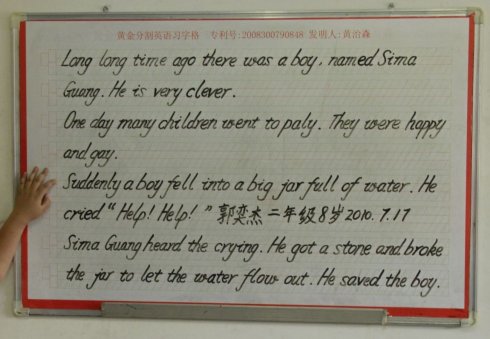 黄金分割英语习字格 专利号:2008300790848 发明人:黄治森
Long long time ago there was a boy, named Sima
Guang. He is very clever.
One day many children went to paly. They were happy
and gay.
Suddenly a boy fell into a big jar full of water. He
cried "Help! Help! " 郭奕杰 二年级8岁2010.7.17
Sima Guang heard the crying. He got a stone and broke
the jar to let the water flow out. He saved the boy.